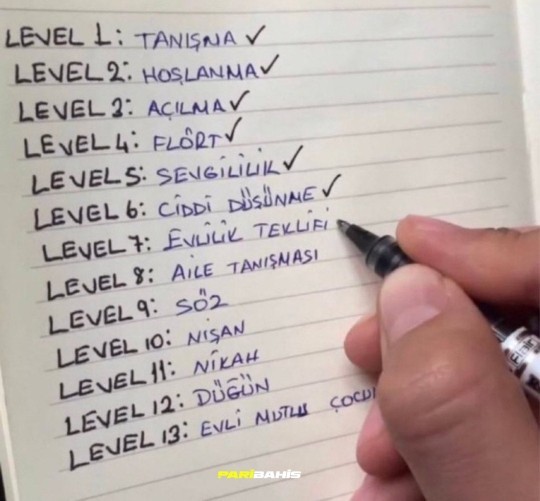 LEVEL 1: TANIŞMA ✓
LEVEL 2: HOŞLANMA ✓
LEVEL 3: AÇILMA ✓
LEVEL 4: FLÖRT ✓
LEVEL 5: SEVGİLİLİK ✓
LEVEL 6: CİDDİ DÜŞÜNME ✓
LEVEL 7: EVLİLİK TEKLİFİ
LEVEL 8: AİLE TANIŞMASI
LEVEL 9: SÖZ
LEVEL 10: NİŞAN
LEVEL 11: NİKAH
LEVEL 12: DÜĞÜN
LEVEL 13: EVLİ MUTLU
PARİBAHİS